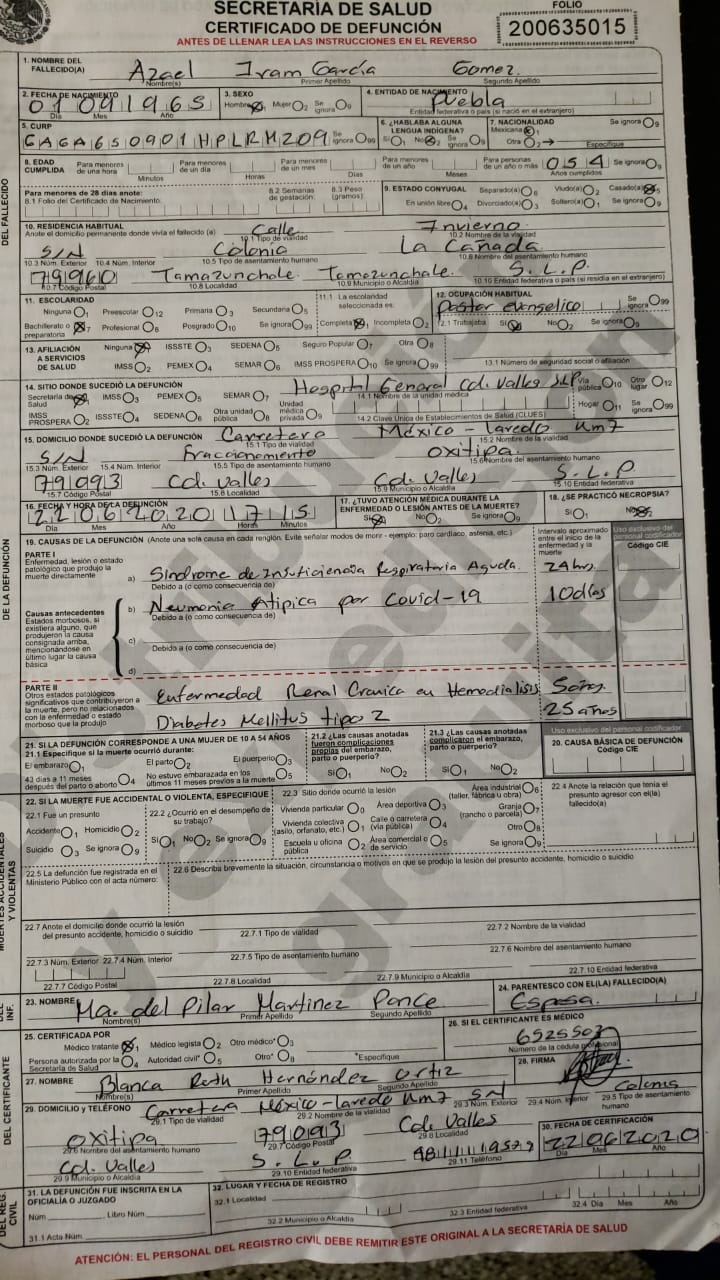 SECRETARÍA DE SALUD
CERTIFICADO DE DEFUNCIÓN
ANTES DE LLENAR LEA LAS INSTRUCCIONES EN EL REVERSO
FOLIO
200635015
1. NOMBRE DEL FALLECIDO(A) Azael Iram García Gomez
Nombre(s) Primer Apellido Segundo Apellido
2. FECHA DE NACIMIENTO 01 09 1965 3. SEXO Hombre Mujer 2 Se ignora 9 4. ENTIDAD DE NACIMIENTO Puebla
Día Mes Año Entidad federativa o país (si nació en el extranjero)
5. CURP GAGA650901HPLRMZ09 Se ignora 99 6. ¿HABLABA ALGUNA LENGUA INDÍGENA? Sí 1 No Se ignora 9 7. NACIONALIDAD Mexicana 1 Otra 2 Especifique Se ignora 9
8. EDAD CUMPLIDA Para menores de una hora Minutos Para menores de un día Horas Para menores de un mes Días Para menores de un año Meses Para personas de un año o más 054 Años cumplidos Se ignora 9
Para menores de 28 días anote: 8.1 Folio del Certificado de Nacimiento: 8.2 Semanas de gestación: 8.3 Peso (gramos):
9. ESTADO CONYUGAL Separado(a) 6 Viudo(a) 2 Casado(a) 5 En unión libre 4 Divorciado(a) 3 Soltero(a) 1 Se ignora 9
10. RESIDENCIA HABITUAL
Anote el domicilio permanente donde vivía el fallecido (a) Calle Invierno
10.1 Tipo de vialidad 10.2 Nombre de la vialidad
S/N Colonia La Cañada
10.3 Núm. Exterior 10.4 Núm. Interior 10.5 Tipo de asentamiento humano 10.6 Nombre del asentamiento humano
79960 Tamazunchale. Tamazunchale. S.L.P.
10.7 Código Postal 10.8 Localidad 10.9 Municipio o Alcaldía 10.10 Entidad federativa o país (si residía en el extranjero)
11. ESCOLARIDAD Ninguna 1 Preescolar 12 Primaria 3 Secundaria 5
Bachillerato o preparatoria 7 Profesional 8 Posgrado 10 Se ignora 99
11.1 La escolaridad seleccionada es: Completa 1 Incompleta 2
12. OCUPACIÓN HABITUAL Pastor evangelico Se ignora 99
12.1 Trabajaba Sí No 2 Se ignora 9
13. AFILIACIÓN A SERVICIOS DE SALUD Ninguna ISSSTE 3 SEDENA 5 Seguro Popular 7 Otra 8
IMSS 2 PEMEX 4 SEMAR 6 IMSS PROSPERA 10 Se ignora 99 13.1 Número de seguridad social o afiliación
14. SITIO DONDE SUCEDIÓ LA DEFUNCIÓN Hospital General Cd. Valles SLP
Secretaría de Salud IMSS 3 PEMEX 5 SEMAR 7 Unidad médica privada 9 14.1 Nombre de la unidad médica Vía pública 10 Otro lugar 12
IMSS PROSPERA 2 ISSSTE 4 SEDENA 6 Otra unidad pública 8 14.2 Clave Única de Establecimientos de Salud (CLUES) Hogar 11 Se ignora 99
15. DOMICILIO DONDE SUCEDIÓ LA DEFUNCIÓN Carretera México-laredo Km7
15.1 Tipo de vialidad 15.2 Nombre de la vialidad
S/N Fraccionamiento oxitipa.
15.3 Núm. Exterior 15.4 Núm. Interior 15.5 Tipo de asentamiento humano 15.6 Nombre del asentamiento humano
79093 Cd. Valles Cd. Valles S.L.P.
15.7 Código Postal 15.8 Localidad 15.9 Municipio o Alcaldía 15.10 Entidad federativa
16. FECHA Y HORA DE LA DEFUNCIÓN 22 06 2020 17 15
Día Mes Año Horas Minutos
17. ¿TUVO ATENCIÓN MÉDICA DURANTE LA ENFERMEDAD O LESIÓN ANTES DE LA MUERTE? Sí No 2 Se ignora 9
18. ¿SE PRACTICÓ NECROPSIA? Sí 1 No
19. CAUSAS DE LA DEFUNCIÓN (Anote una sola causa en cada renglón. Evite señalar modos de morir - ejemplo: paro cardiaco, astenia, etc.)
Intervalo aproximado entre el inicio de la enfermedad y la muerte
Uso exclusivo del personal codificador
Código CIE
PARTE I
Enfermedad, lesión o estado patológico que produjo la muerte directamente
a) Síndrome de Insuficiencia Respiratoria Aguda. 24hrs.
Debido a (o como consecuencia de)
Causas antecedentes
Estados morbosos, si existiera alguno, que produjeron la causa consignada arriba, mencionándose en último lugar la causa básica
b) Neumonia Atipica por Covid-19 10días
Debido a (o como consecuencia de)
c)
Debido a (o como consecuencia de)
d)
PARTE II
Otros estados patológicos significativos que contribuyeron a la muerte, pero no relacionados con la enfermedad o estado morboso que la produjo
Enfermedad Renal Cronica en Hemodialisis 5años.
Diabetes Mellitus tipo 2 25 años
21. SI LA DEFUNCIÓN CORRESPONDE A UNA MUJER DE 10 A 54 AÑOS
21.1 Especifique si la muerte ocurrió durante:
El embarazo 1 El parto 2 El puerperio 3
43 días a 11 meses después del parto o aborto 4 No estuvo embarazada en los últimos 11 meses previos a la muerte 5
21.2 ¿Las causas anotadas fueron complicaciones propias del embarazo, parto o puerperio? Sí 1 No 2
21.3 ¿Las causas anotadas complicaron el embarazo, parto o puerperio? Sí 1 No 2
Uso exclusivo del personal codificador
20. CAUSA BÁSICA DE DEFUNCIÓN
Código CIE
22. SI LA MUERTE FUE ACCIDENTAL O VIOLENTA, ESPECIFIQUE
22.1 Fue un presunto Accidente 1 Homicidio 2 Suicidio 3 Se ignora 9
22.2 ¿Ocurrió en el desempeño de su trabajo? Sí 1 No 2 Se ignora 9
22.3 Sitio donde ocurrió la lesión
Vivienda particular 0 Área deportiva 3 Área industrial (taller, fábrica u obra) 6
Vivienda colectiva (asilo, orfanato, etc.) 1 Calle o carretera (vía pública) 4 Granja (rancho o parcela) 7
Escuela u oficina pública 2 Área comercial o de servicio 5 Otro 8 Se ignora 9
22.4 Anote la relación que tenía el presunto agresor con el(la) fallecido(a)
22.5 La defunción fue registrada en el Ministerio Público con el acta número:
22.6 Describa brevemente la situación, circunstancia o motivos en que se produjo la lesión del presunto accidente, homicidio o suicidio
22.7 Anote el domicilio donde ocurrió la lesión del presunto accidente, homicidio o suicidio
22.7.1 Tipo de vialidad 22.7.2 Nombre de la vialidad
22.7.3 Núm. Exterior 22.7.4 Núm. Interior 22.7.5 Tipo de asentamiento humano 22.7.6 Nombre del asentamiento humano
22.7.7 Código Postal 22.7.8 Localidad 22.7.9 Municipio o Alcaldía 22.7.10 Entidad federativa
23. NOMBRE Ma. del Pilar Martinez Ponce
Nombre(s) Primer Apellido Segundo Apellido
24. PARENTESCO CON EL(LA) FALLECIDO(A) Esposa.
25. CERTIFICADA POR
Médico tratante 1 Médico legista 2 Otro médico* 3
Persona autorizada por la Secretaría de Salud 4 Autoridad civil* 5 Otro* 8 *Especifique
26. SI EL CERTIFICANTE ES MÉDICO
Número de la cédula profesional
27. NOMBRE Blanca Ruth Hernández Ortiz
Nombre(s) Primer Apellido Segundo Apellido
28. FIRMA
29. DOMICILIO Y TELÉFONO Carretera México-laredo Km7 SN Colonia
29.1 Tipo de vialidad 29.2 Nombre de la vialidad 29.3 Núm. Exterior 29.4 Núm. Interior 29.5 Tipo de asentamiento humano
oxitipa 79093 Cd. Valles
29.6 Nombre del asentamiento humano 29.7 Código Postal 29.8 Localidad
Cd. Valles S.L.P.
29.9 Municipio o Alcaldía 29.10 Entidad federativa 29.11 Teléfono
30. FECHA DE CERTIFICACIÓN 22 06 2020
Día Mes Año
31. LA DEFUNCIÓN FUE INSCRITA EN LA OFICIALÍA O JUZGADO
Núm. Libro Núm.
31.1 Acta Núm.
32. LUGAR Y FECHA DE REGISTRO
32.1 Localidad
32.2 Municipio o Alcaldía 32.3 Entidad federativa 32.4 Día Mes Año
ATENCIÓN: EL PERSONAL DEL REGISTRO CIVIL DEBE REMITIR ESTE ORIGINAL A LA SECRETARÍA DE SALUD
DEL FALLECIDO
DE LA DEFUNCIÓN
MUERTES ACCIDENTALES Y VIOLENTAS
DEL INF.
DEL CERTIFICANTE
DEL REG. CIVIL